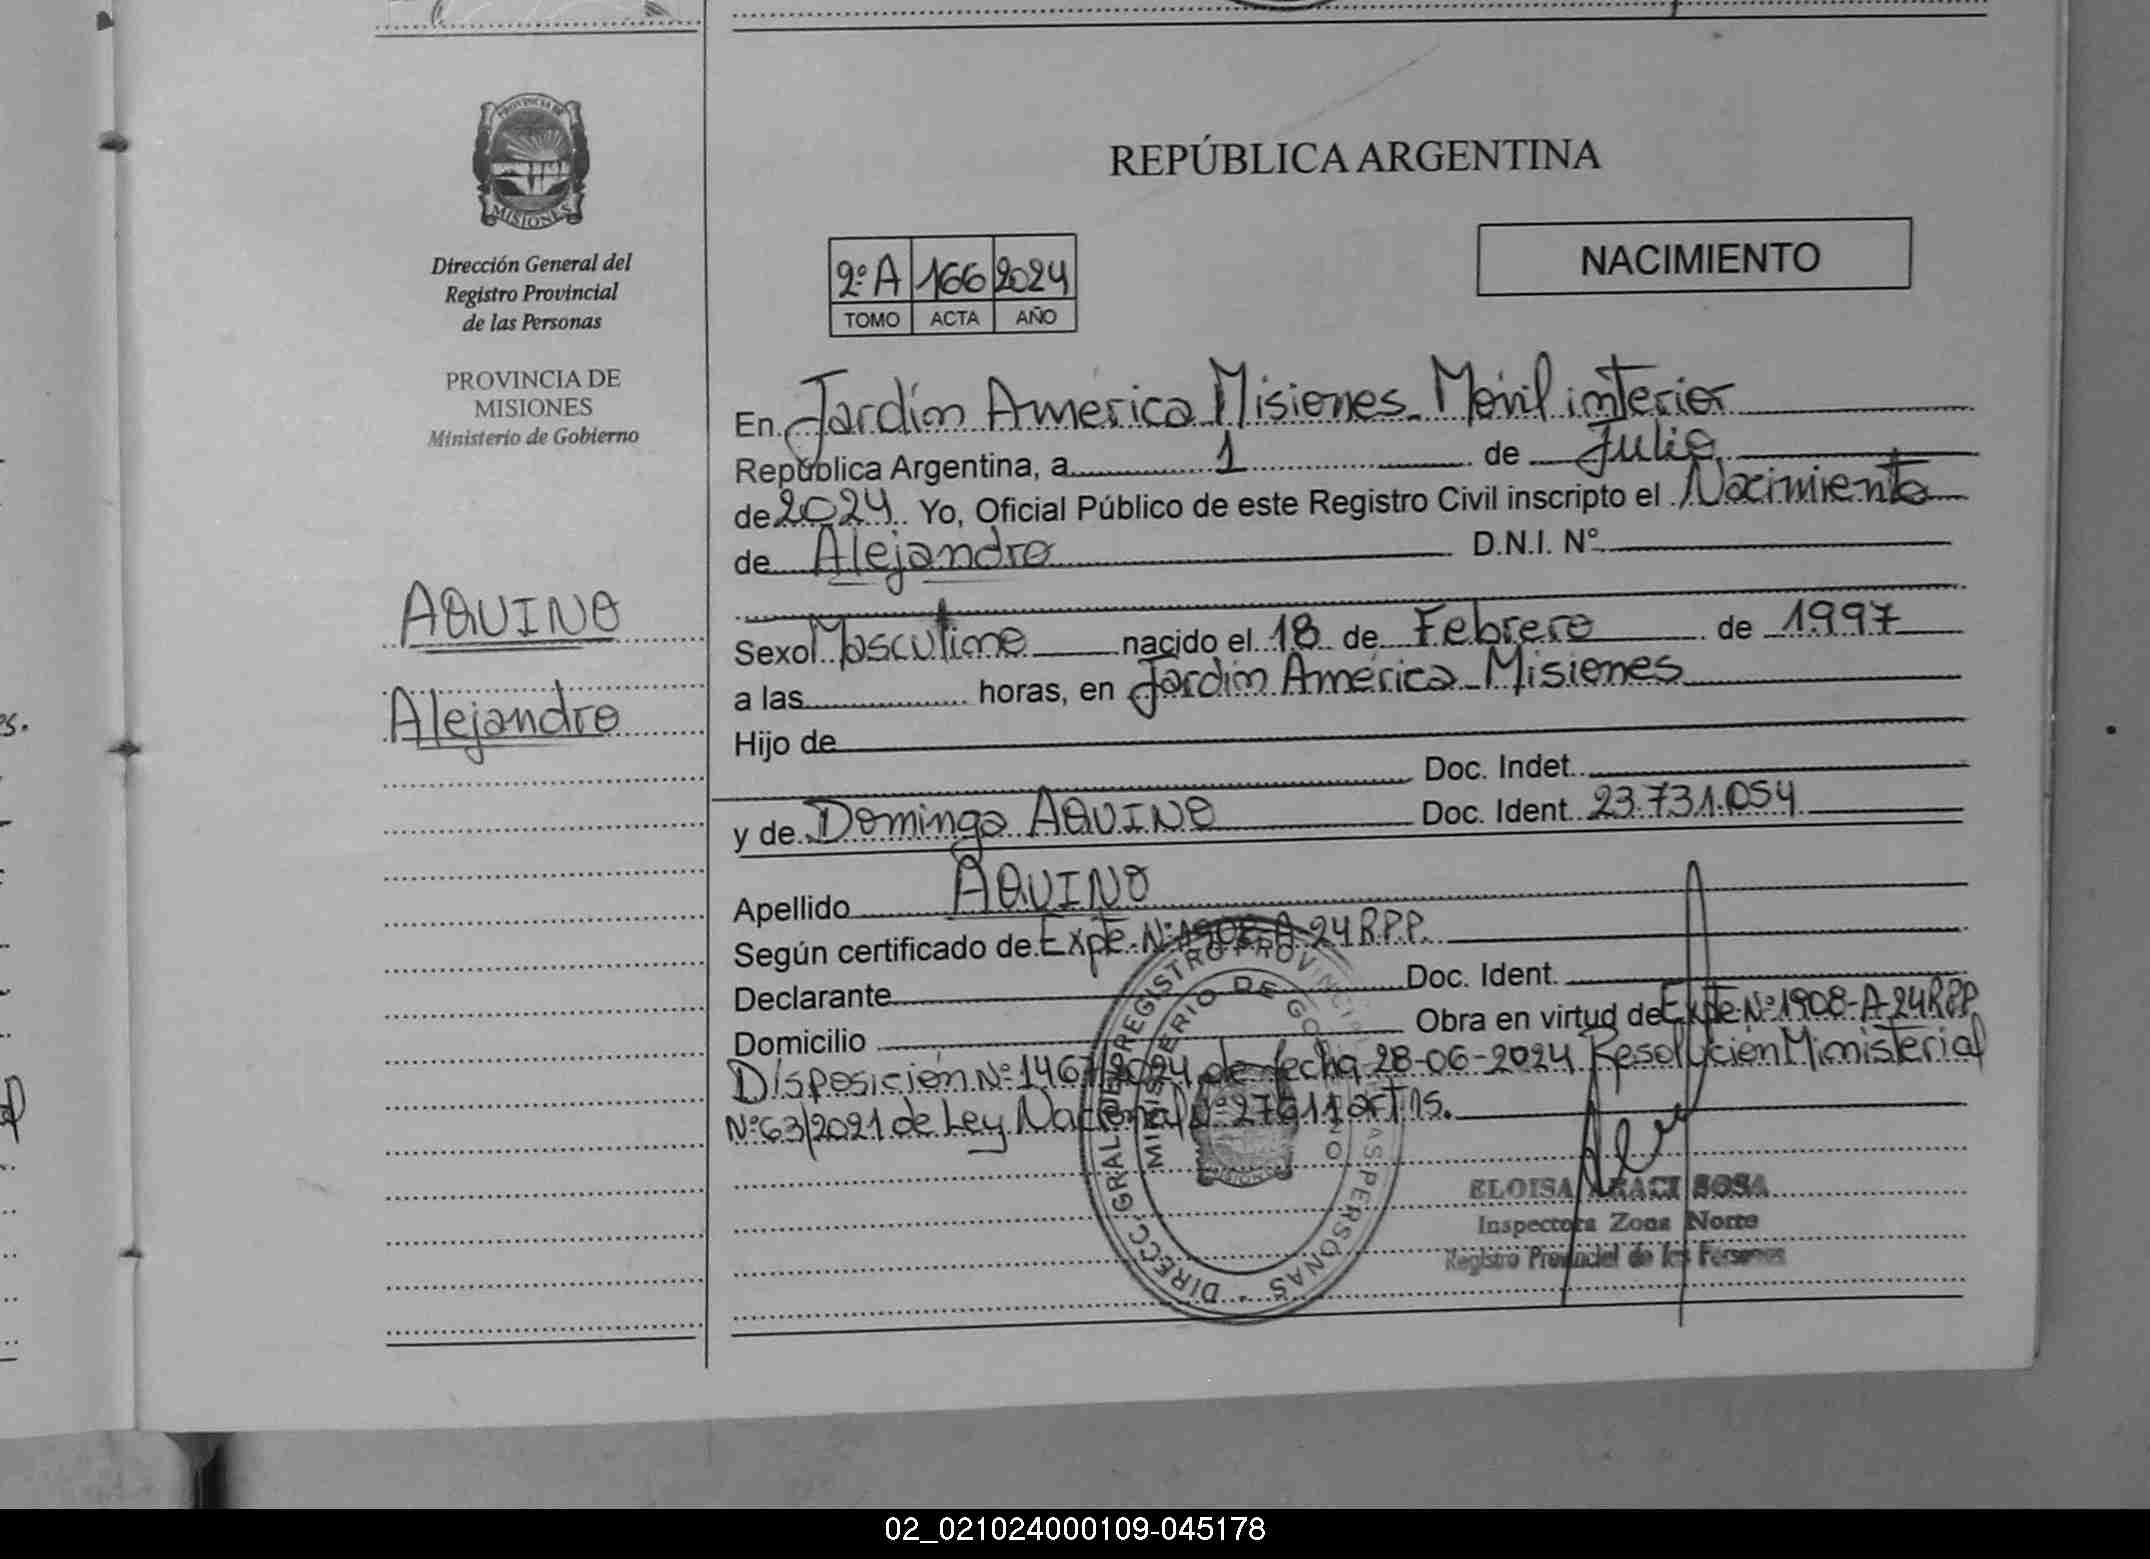 PROVINCIA DE
MISIONES
Dirección General del
Registro Provincial
de las Personas
PROVINCIA DE
MISIONES
Ministerio de Gobierno
AQUINO
Alejandro
REPÚBLICA ARGENTINA
2º A 166 2024
TOMO ACTA AÑO
NACIMIENTO
En Jardín América Misiones Móvil interior
República Argentina, a 1 de Julio
de 2024 Yo, Oficial Público de este Registro Civil inscripto el Nacimiento
de Alejandro D.N.I. Nº
Sexo Masculino nacido el 18 de Febrero de 1997
a las horas, en Jardín América Misiones
Hijo de
Doc. Indet.
y de Dominga AQUINO Doc. Ident. 23.731.054
Apellido AQUINO
Según certificado de Expte. Nº 1908-A-24 R.P.P.
Declarante Doc. Ident.
Domicilio Obra en virtud de Expte Nº 1908-A-24 R.P.P.
Disposición Nº 1467/2024 de fecha 28-06-2024 Resolución Ministerial
Nº 63/2021 de Ley Nacional Nº 27611
DIRECC. GRAL. DE REGISTRO PROVINCIAL DE LAS PERSONAS
MINISTERIO DE GOBIERNO
ELOISA ARACI SOSA
Inspectora Zona Norte
Registro Provincial de las Personas
02_021024000109-045178